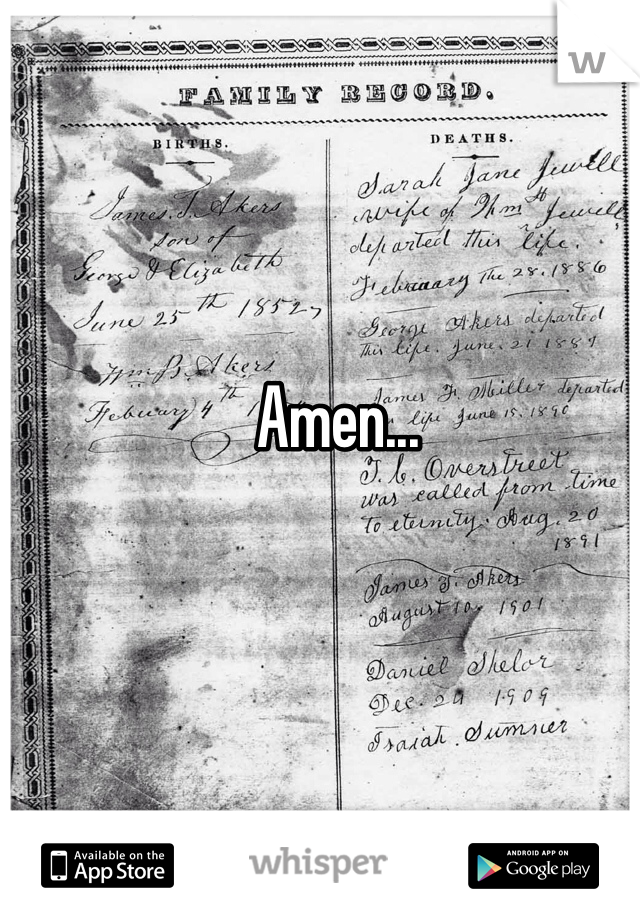 w
FAMILY RECORD.
BIRTHS.
James. T. Akers
son of
George & Elizabeth
June 25th 1852
Wm B. Akers
Febuary 4th
DEATHS.
Sarah Jane Jewell
wife of Wm H Jewell
departed this life.
February the 28. 1886
George Akers departed
this life. June. 21 1889
James F. Miller departed
life June 15. 1890
T. C. Overstreet
was called from time
to eternity. Aug. 20
1891
James T. Akers
August 10 1901
Daniel Shelor
Dec. 20 1909
Isaiah. Sumner
Amen...
Available on the
App Store
whisper
ANDROID APP ON
Google play